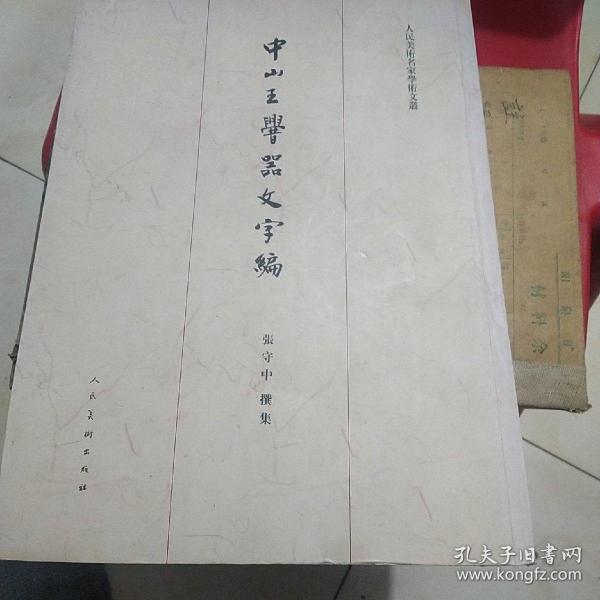 人民美術名家學術文叢
中山王䰜器文字編
張守中 撰集
人民美術出版社
材料余
孔夫子旧书网
www.kongfz.com